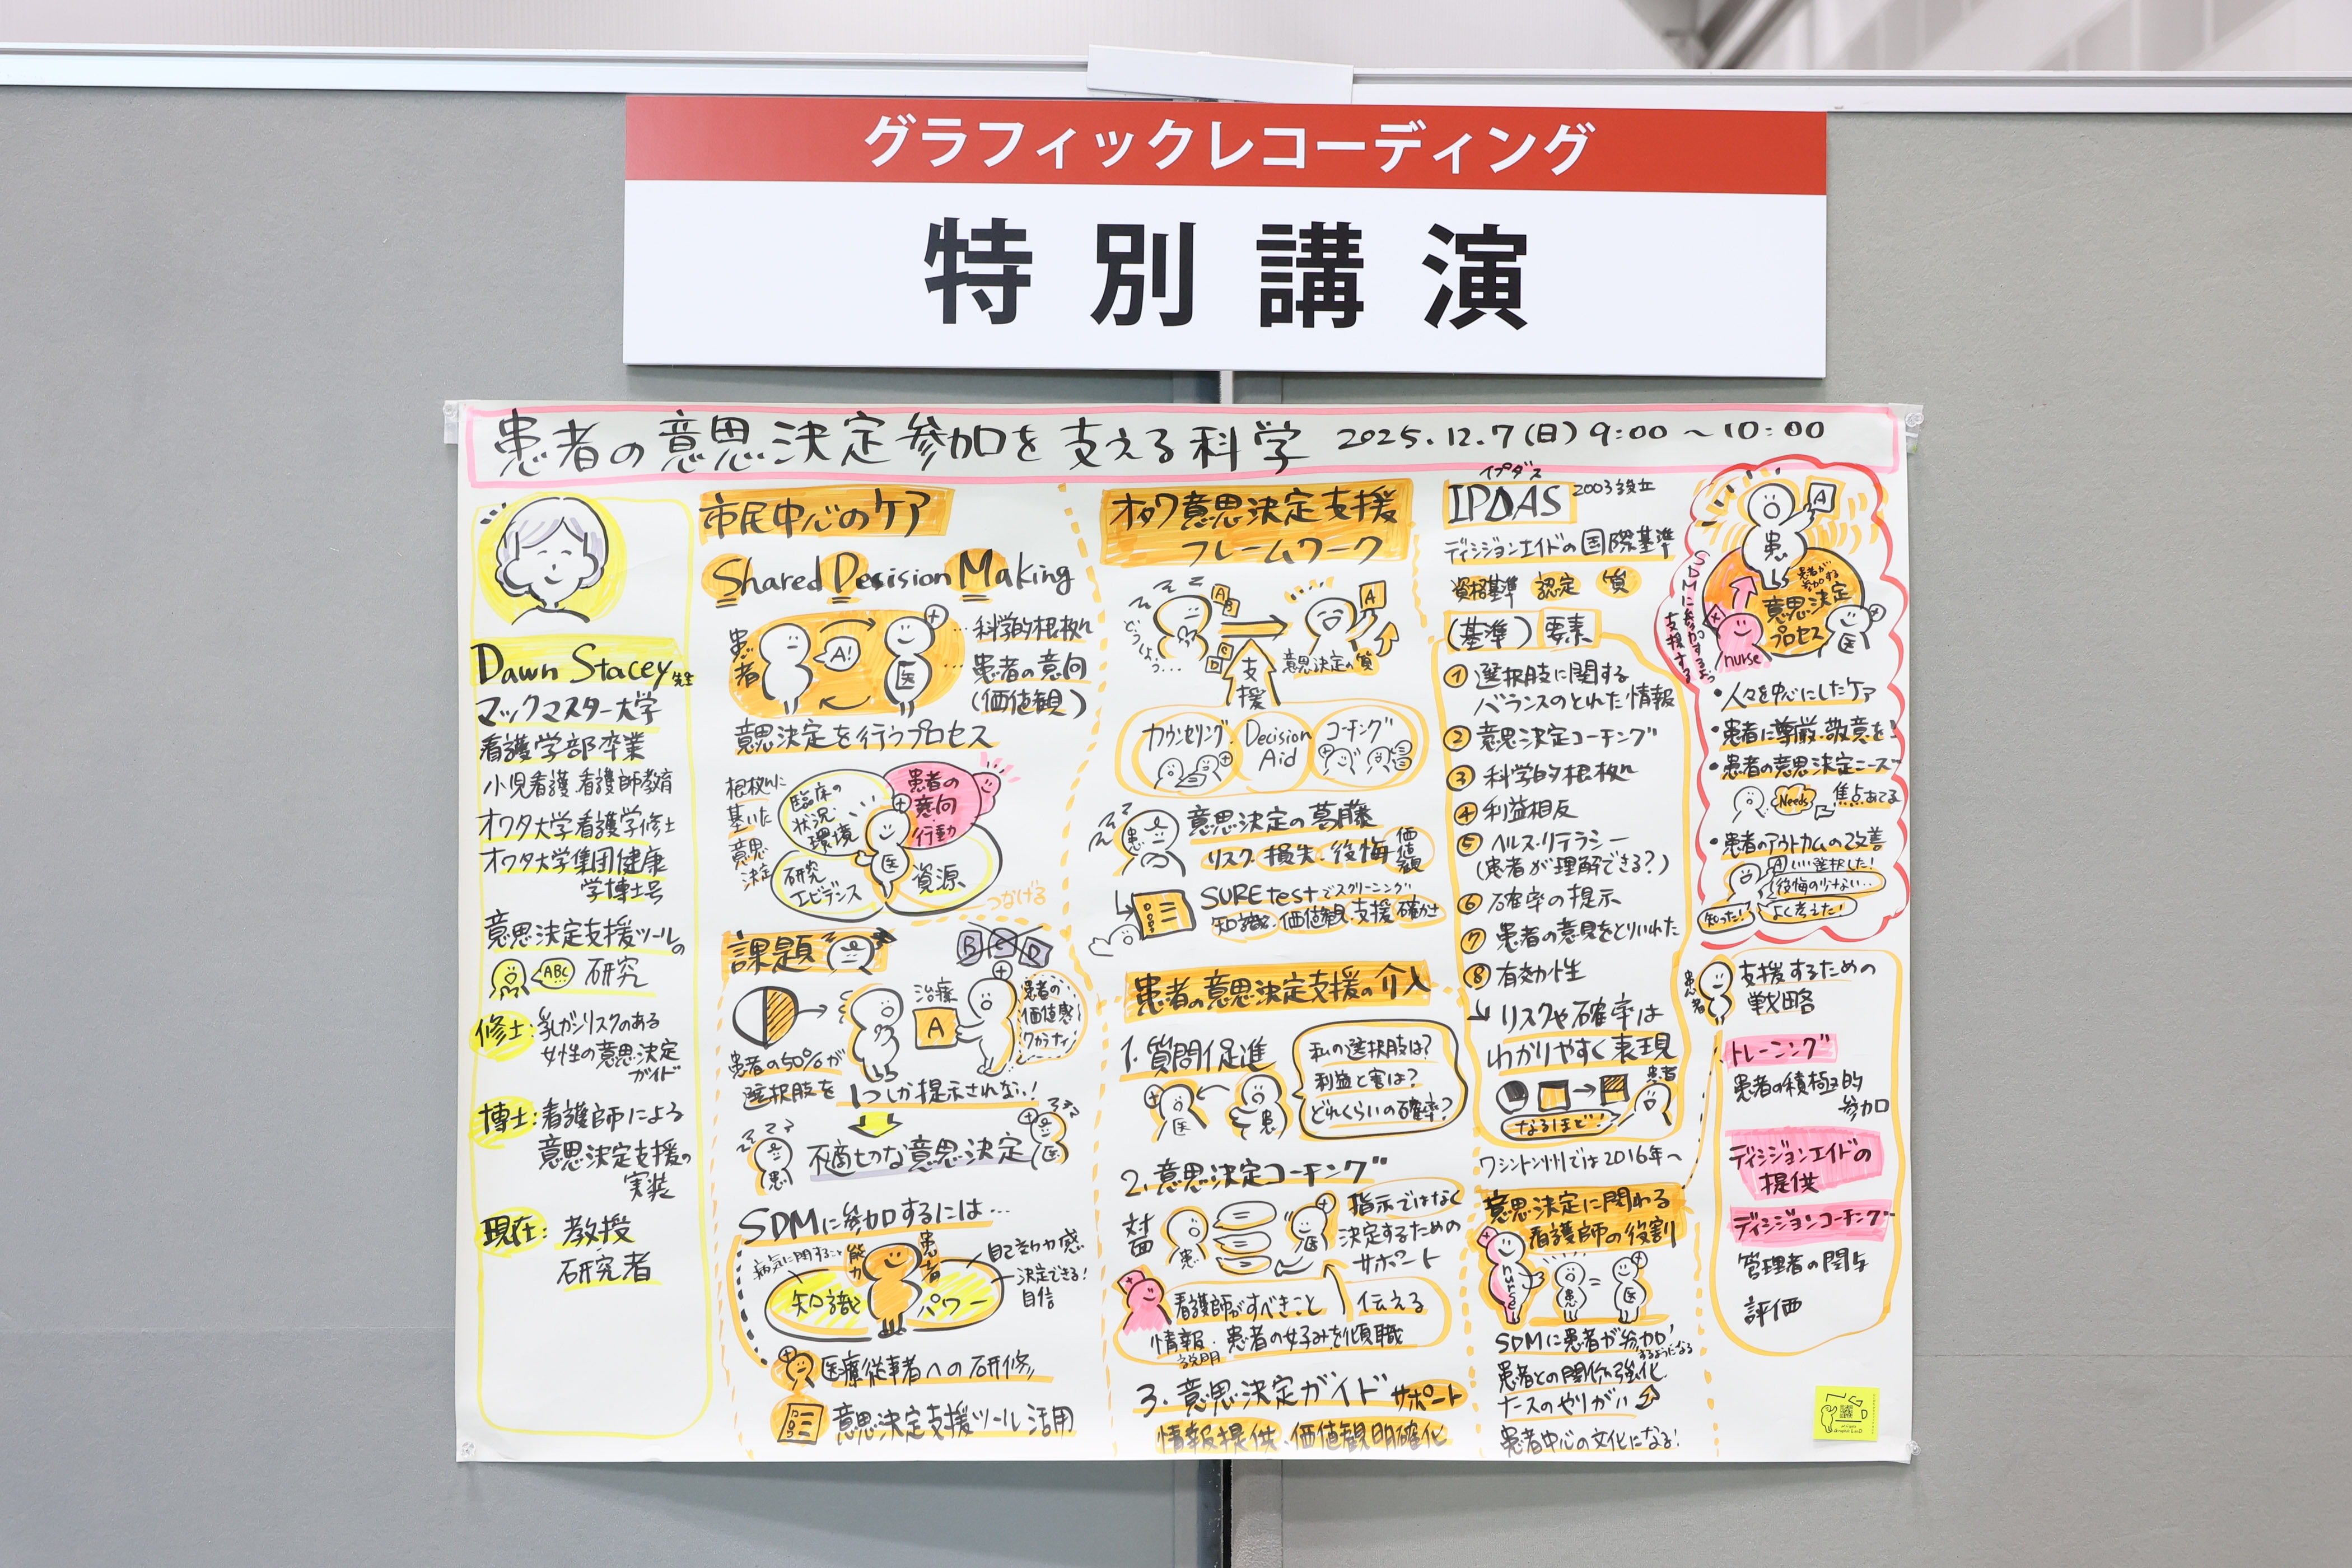 グラフィックレコーディング
特別講演
患者の意思決定参加を支える科学 2025.12.7(日) 9:00~10:00
Dawn Stacey 先生
マックマスター大学
看護学部卒業
小児看護 看護師教育
オワタ大学看護学修士
オワタ大学集団健康
学博士号
意思決定支援ツールの
ABC 研究
修士:乳ガンリスクのある
女性の意思決定
ガイド
博士:看護師による
意思決定支援の
実装
現在:教授
研究者
市民中心のケア
Shared Decision Making
患者
A!
医
科学的根拠
患者の意向
(価値観)
意思決定を行うプロセス
根拠に
基いた
意思
決定
臨床の
状況
環境
患者の
意向
行動
医
研究
エビデンス
資源
つなげる
課題
B C D
治療
A
患者の
価値感
ワカラナイ
患者の50%が
選択肢を 1つしか提示されない!
患
不適切な意思決定
医
SDMに参加するには…
病気に関すること
能力
患者
自己効力感
決定できる!
自信
知識
パワー
医療従事者への研修
意思決定支援ツール活用
オタワ意思決定支援
フレームワーク
どうしよう…
A
B
C
D
A
支援
意思決定の質
カウンセリング
Decision
Aid
コーチング
患
意思決定の葛藤
リスク・損失・後悔 価値観
SURE testでスクリーニング
知識・価値観・支援・確かさ
患者の意思決定支援の介入
1. 質問促進
医
患
私の選択肢は?
利益と害は?
どれくらいの確率?
2. 意思決定コーチング
対面
患
医
指示ではなく
決定するための
サポート
看護師がすべきこと
伝える
情報・患者の好みを傾聴
説明
3. 意思決定ガイド サポート
情報提供・価値観明確化
イプダス
IPDAS 2003設立
ディシジョンエイドの国際基準
資格基準 認定 質
(基準) 要素
① 選択肢に関する
バランスのとれた情報
② 意思決定コーチング
③ 科学的根拠
④ 利益相反
⑤ ヘルス・リテラシー
(患者が理解できる?)
⑥ 確率の提示
⑦ 患者の意見をとりいれた
⑧ 有効性
リスクや確率は
わかりやすく表現
患者
なるほど!
ワシントン州では2016年~
意思決定に関わる
看護師の役割
nurse
患
=
医
SDMに患者が参加!
するようになる
患者との関係強化
ナースのやりがい
患者中心の文化になる!
A
患
SDMに参加するよう
支援する
患者が
参加する
意思決定
プロセス
nurse
医
・人々を中心にしたケア
・患者に尊厳・敬意を!
・患者の意思決定ニーズ
Needs
焦点あてる
・患者のアウトカムの改善
いい選択した!
後悔の少ない…
知った!
よく考えた!
患者
支援するための
戦略
トレーニング
患者の積極的
参加
ディシジョンエイドの
提供
ディシジョンコーチング
管理者の関与
評価